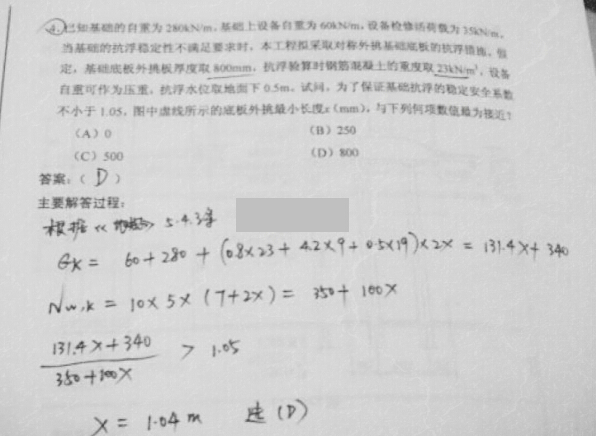 4. 已知基础的自重为280kN/m，基础上设备自重为60kN/m，设备检修活荷载为35kN/m，
当基础的抗浮稳定性不满足要求时，本工程拟采取对称外挑基础底板的抗浮措施，假
定，基础底板外挑板厚度取800mm，抗浮验算时钢筋混凝土的重度取23kN/m³，设备
自重可作为压重，抗浮水位取地面下0.5m。试问，为了保证基础抗浮的稳定安全系数
不小于1.05，图中虚线所示的底板外挑最小长度x(mm)，与下列何项数值最为接近？
（A）0 （B）250
（C）500 （D）800
答案：（ D ）
主要解答过程：
根据《地基》5.4.3条
Gk = 60+280+(0.8×23+4.2×9+0.5×19)×2x = 131.4x+340
Nw,k = 10×5×(7+2x) = 350+100x
131.4x+340
350+100x
> 1.05
x = 1.04m 选(D)